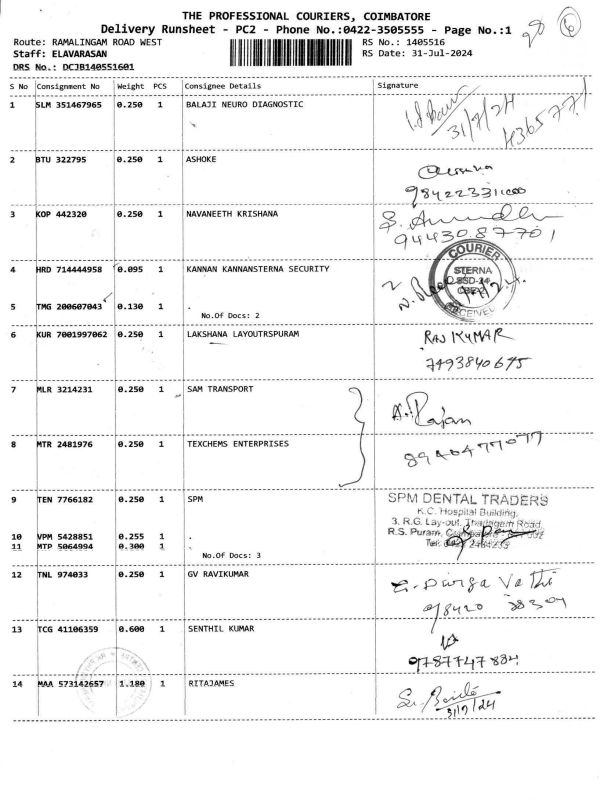 THE PROFESSIONAL COURIERS, COIMBATORE
Delivery Runsheet - PC2 - Phone No.:0422-3505555 - Page No.:1
Route: RAMALINGAM ROAD WEST RS No.: 1405516
Staff: ELAVARASAN RS Date: 31-Jul-2024
DRS No.: DCJB140551601
S No Consignment No Weight PCS Consignee Details Signature
1 SLM 351467965 0.250 1 BALAJI NEURO DIAGNOSTIC
31/7/24
2 BTU 322795 0.250 1 ASHOKE
3 KOP 442320 0.250 1 NAVANEETH KRISHANA
9443087701
4 HRD 714444958 0.095 1 KANNAN KANNANSTERNA SECURITY
COURIER
STERNA
5 TMG 200607043 0.130 1 .
No.Of Docs: 2
6 KUR 7001997062 0.250 1 LAKSHANA LAYOUTRSPURAM
RAJ KUMAR
7493840645
7 MLR 3214231 0.250 1 SAM TRANSPORT
A. Rajan
8 MTR 2481976 0.250 1 TEXCHEMS ENTERPRISES
9 TEN 7766182 0.250 1 SPM
SPM DENTAL TRADERS
K.C. Hospital Building,
3, R.G. Lay-out, Thadagam Road,
R.S. Puram,
10 VPM 5428851 0.255 1 .
11 MTP 5064994 0.300 1
No.Of Docs: 3
12 TNL 974033 0.250 1 GV RAVIKUMAR
13 TCG 41106359 0.600 1 SENTHIL KUMAR
9787747884
14 MAA 573142657 1.180 1 RITAJAMES
31/7/24